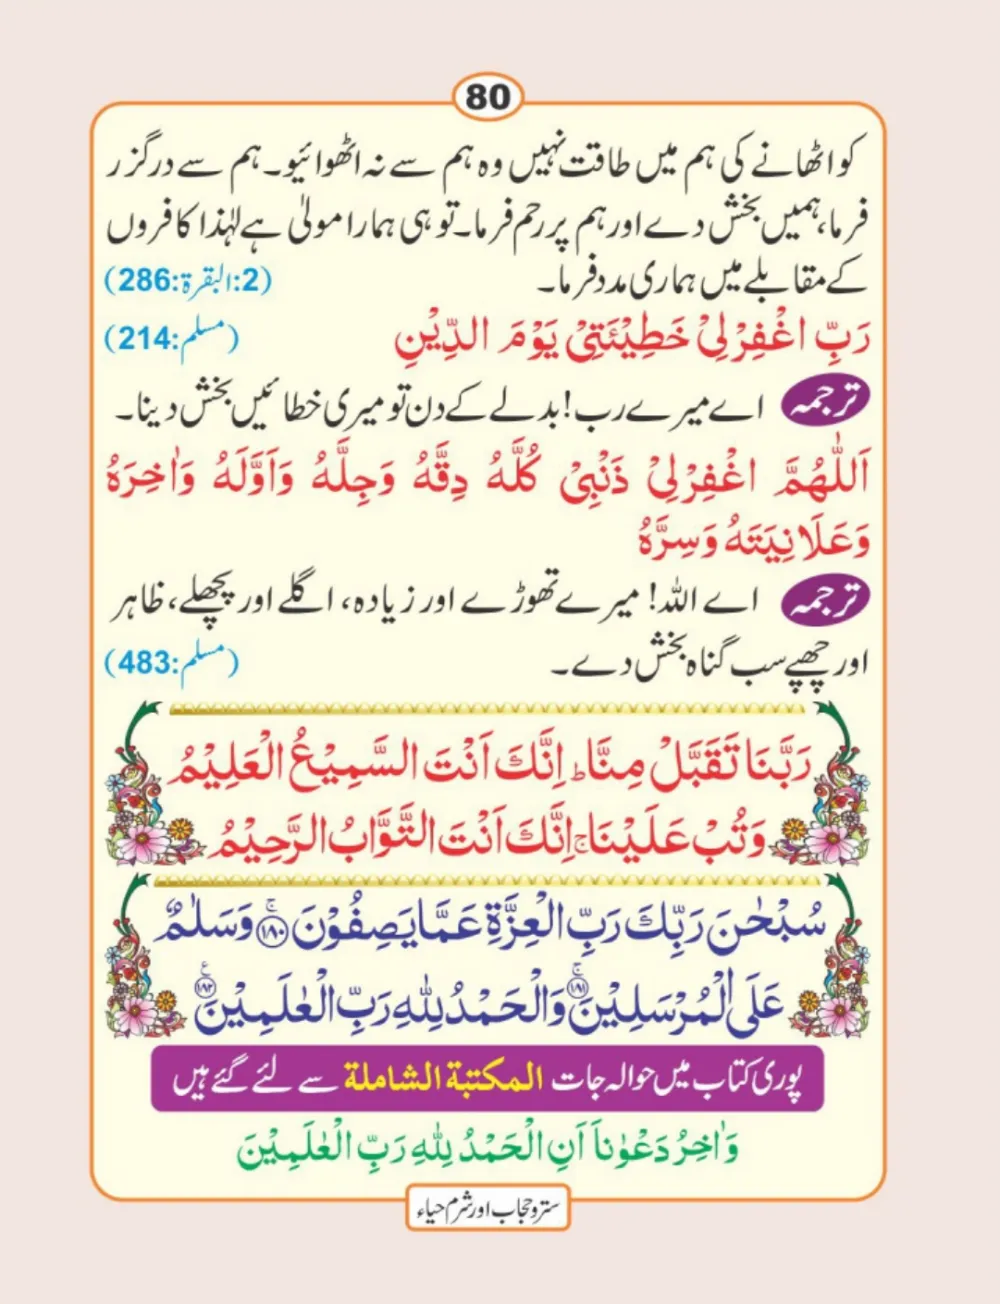 80
کو اٹھانے کی ہم میں طاقت نہیں وہ ہم سے نہ اٹھوائیو۔ ہم سے درگزر
فرما، ہمیں بخش دے اور ہم پر رحم فرما۔ تو ہی ہمارا مولیٰ ہے لہٰذا کافروں
کے مقابلے میں ہماری مدد فرما۔ (2:البقرۃ:286)
رَبِّ اغْفِرْ لِیْ خَطِیْئَتِیْ یَوْمَ الدِّیْنِ (مسلم:214)
ترجمہ اے میرے رب! بدلے کے دن تو میری خطائیں بخش دینا۔
اَللّٰهُمَّ اغْفِرْ لِیْ ذَنْبِیْ کُلَّهُ دِقَّهُ وَجِلَّهُ وَاَوَّلَهُ وَاٰخِرَهُ
وَعَلَانِیَتَهُ وَسِرَّهُ
ترجمہ اے اللہ! میرے تھوڑے اور زیادہ، اگلے اور پچھلے، ظاہر
اور چھپے سب گناہ بخش دے۔ (مسلم:483)
رَبَّنَا تَقَبَّلْ مِنَّا ؕ اِنَّكَ اَنْتَ السَّمِیْعُ الْعَلِیْمُ
وَتُبْ عَلَیْنَا ۚ اِنَّكَ اَنْتَ التَّوَّابُ الرَّحِیْمُ
سُبْحٰنَ رَبِّكَ رَبِّ الْعِزَّةِ عَمَّا یَصِفُوْنَ ۚ﴿۱۸۰﴾ وَسَلٰمٌ
عَلَی الْمُرْسَلِیْنَ ۚ﴿۱۸۱﴾ وَالْحَمْدُ لِلّٰهِ رَبِّ الْعٰلَمِیْنَ ﴿۱۸۲﴾
پوری کتاب میں حوالہ جات المكتبة الشاملة سے لئے گئے ہیں
وَاٰخِرُ دَعْوٰنَا اَنِ الْحَمْدُ لِلّٰهِ رَبِّ الْعٰلَمِیْنَ
ستر و حجاب اور شرم حیاء